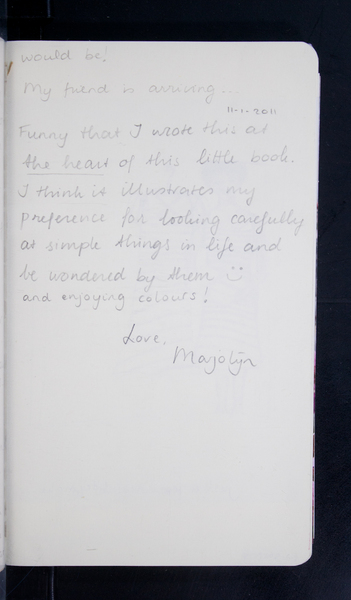 would be!
My friend is arriving...
11-1-2011
Funny that I wrote this at
the heart of this little book.
I think it illustrates my
preference for looking carefully
at simple things in life and
be wondered by them :)
and enjoying colours!
Love,
Marjolijn